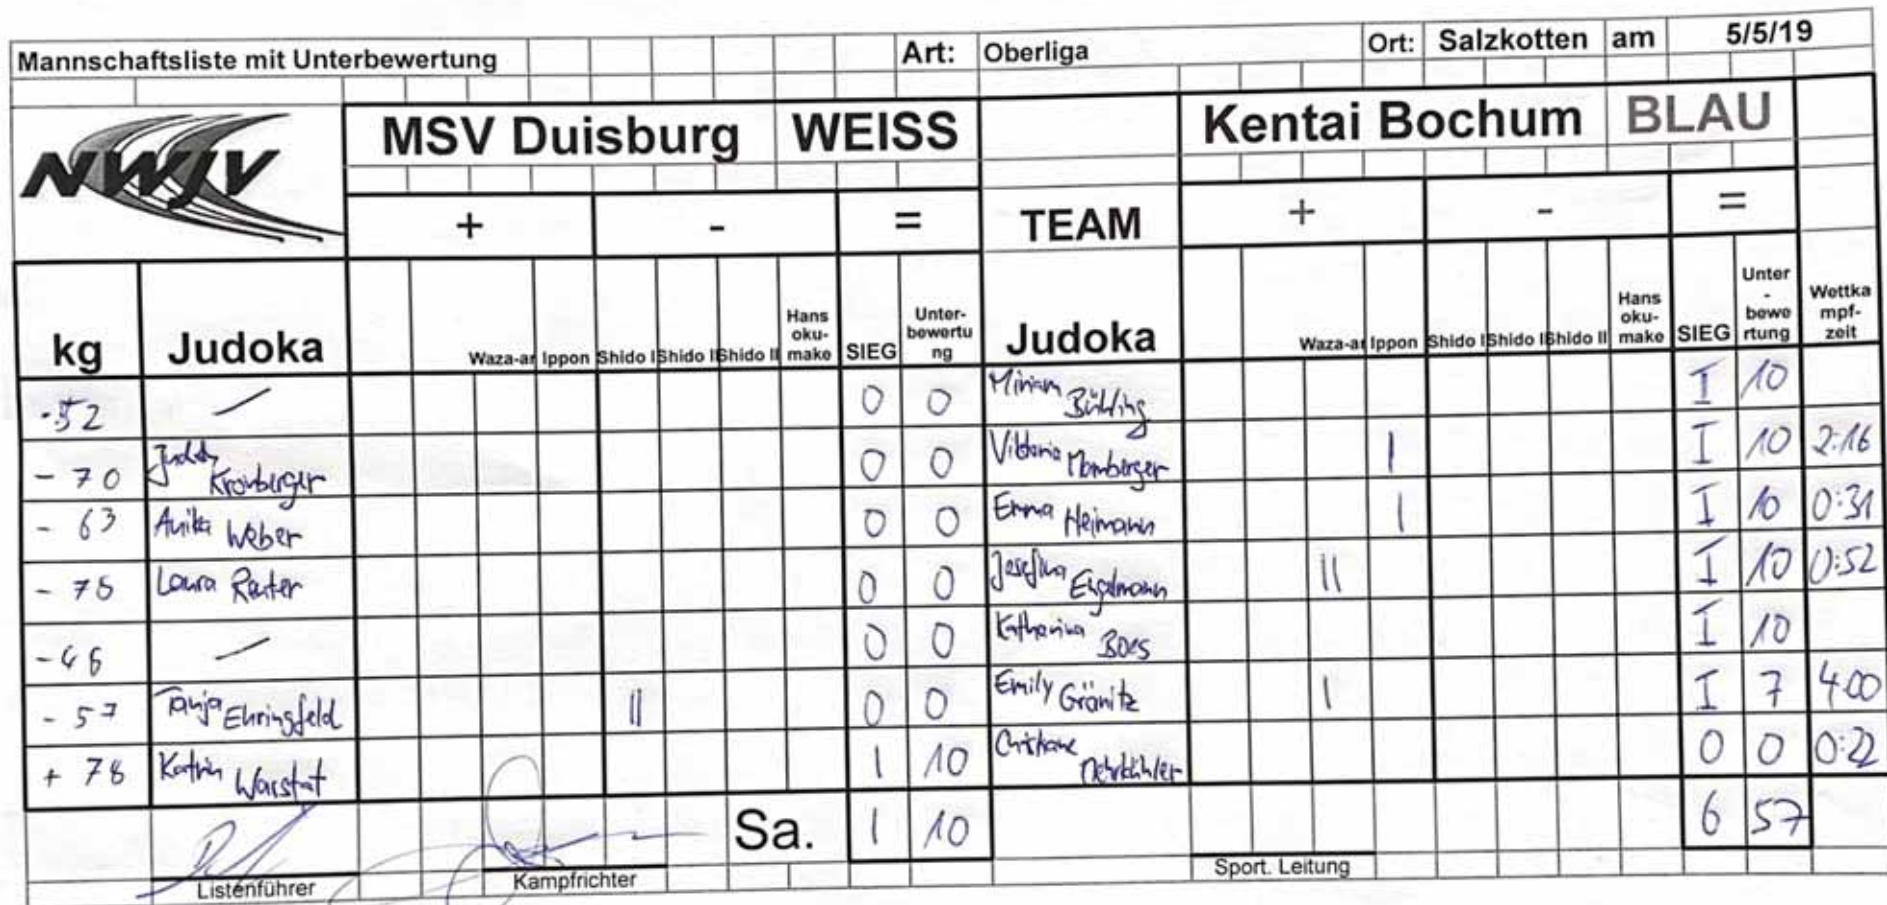 Mannschaftsliste mit Unterbewertung Art: Oberliga Ort: Salzkotten am 5/5/19
NWJV MSV Duisburg WEISS Kentai Bochum BLAU
+ - = TEAM + - =
kg Judoka Waza-ar Ippon Shido I Shido II Shido II Hans oku- make SIEG Unter- bewertu ng Judoka Waza-ar Ippon Shido I Shido II Shido II Hans oku- make SIEG Unter - bewe rtung Wettka mpf- zeit
-52 — 0 0 Miriam Bühling I 10
- 70 Kronberger 0 0 Viktoria Momberger I I 10 2:16
- 63 Anika Weber 0 0 Emma Heimann I I 10 0:31
- 78 Laura Reuter 0 0 Josefina Engelmann II I 10 0:52
-48 — 0 0 Katharina Boes I 10
- 57 Tanja Ehringfeld II 0 0 Emily Gränitz I I 7 4:00
+ 78 Katrin Warstat 1 10 0 0 0:22
Sa. 1 10 6 57
Listenführer Kampfrichter Sport. Leitung